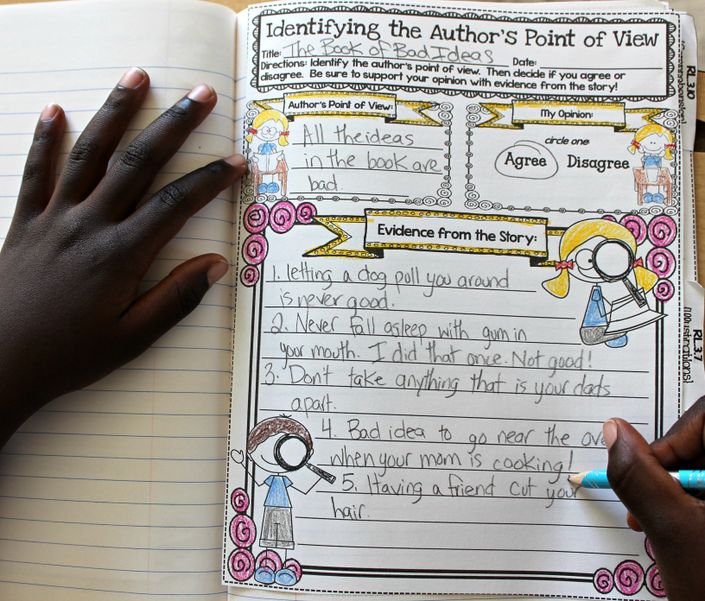 Identifying the Author's Point of View
Title: The Book of Bad Ideas Date:
Directions: Identify the author's point of view. Then decide if you agree or
disagree. Be sure to support your opinion with evidence from the story!
Author's Point of View:
All the ideas
in the book are
bad
My Opinion:
circle one:
Agree Disagree
Evidence from the Story:
1. letting a dog poll you around
is never good.
2. Never fall asleep with gum in
your mouth. I did that once. Not good!
3. Don't take anything that is your dads
apart.
4. Bad idea to go near the
when your mom is cooking!
5. Having a friend cut your
hair.
RL3.10
RL3.7